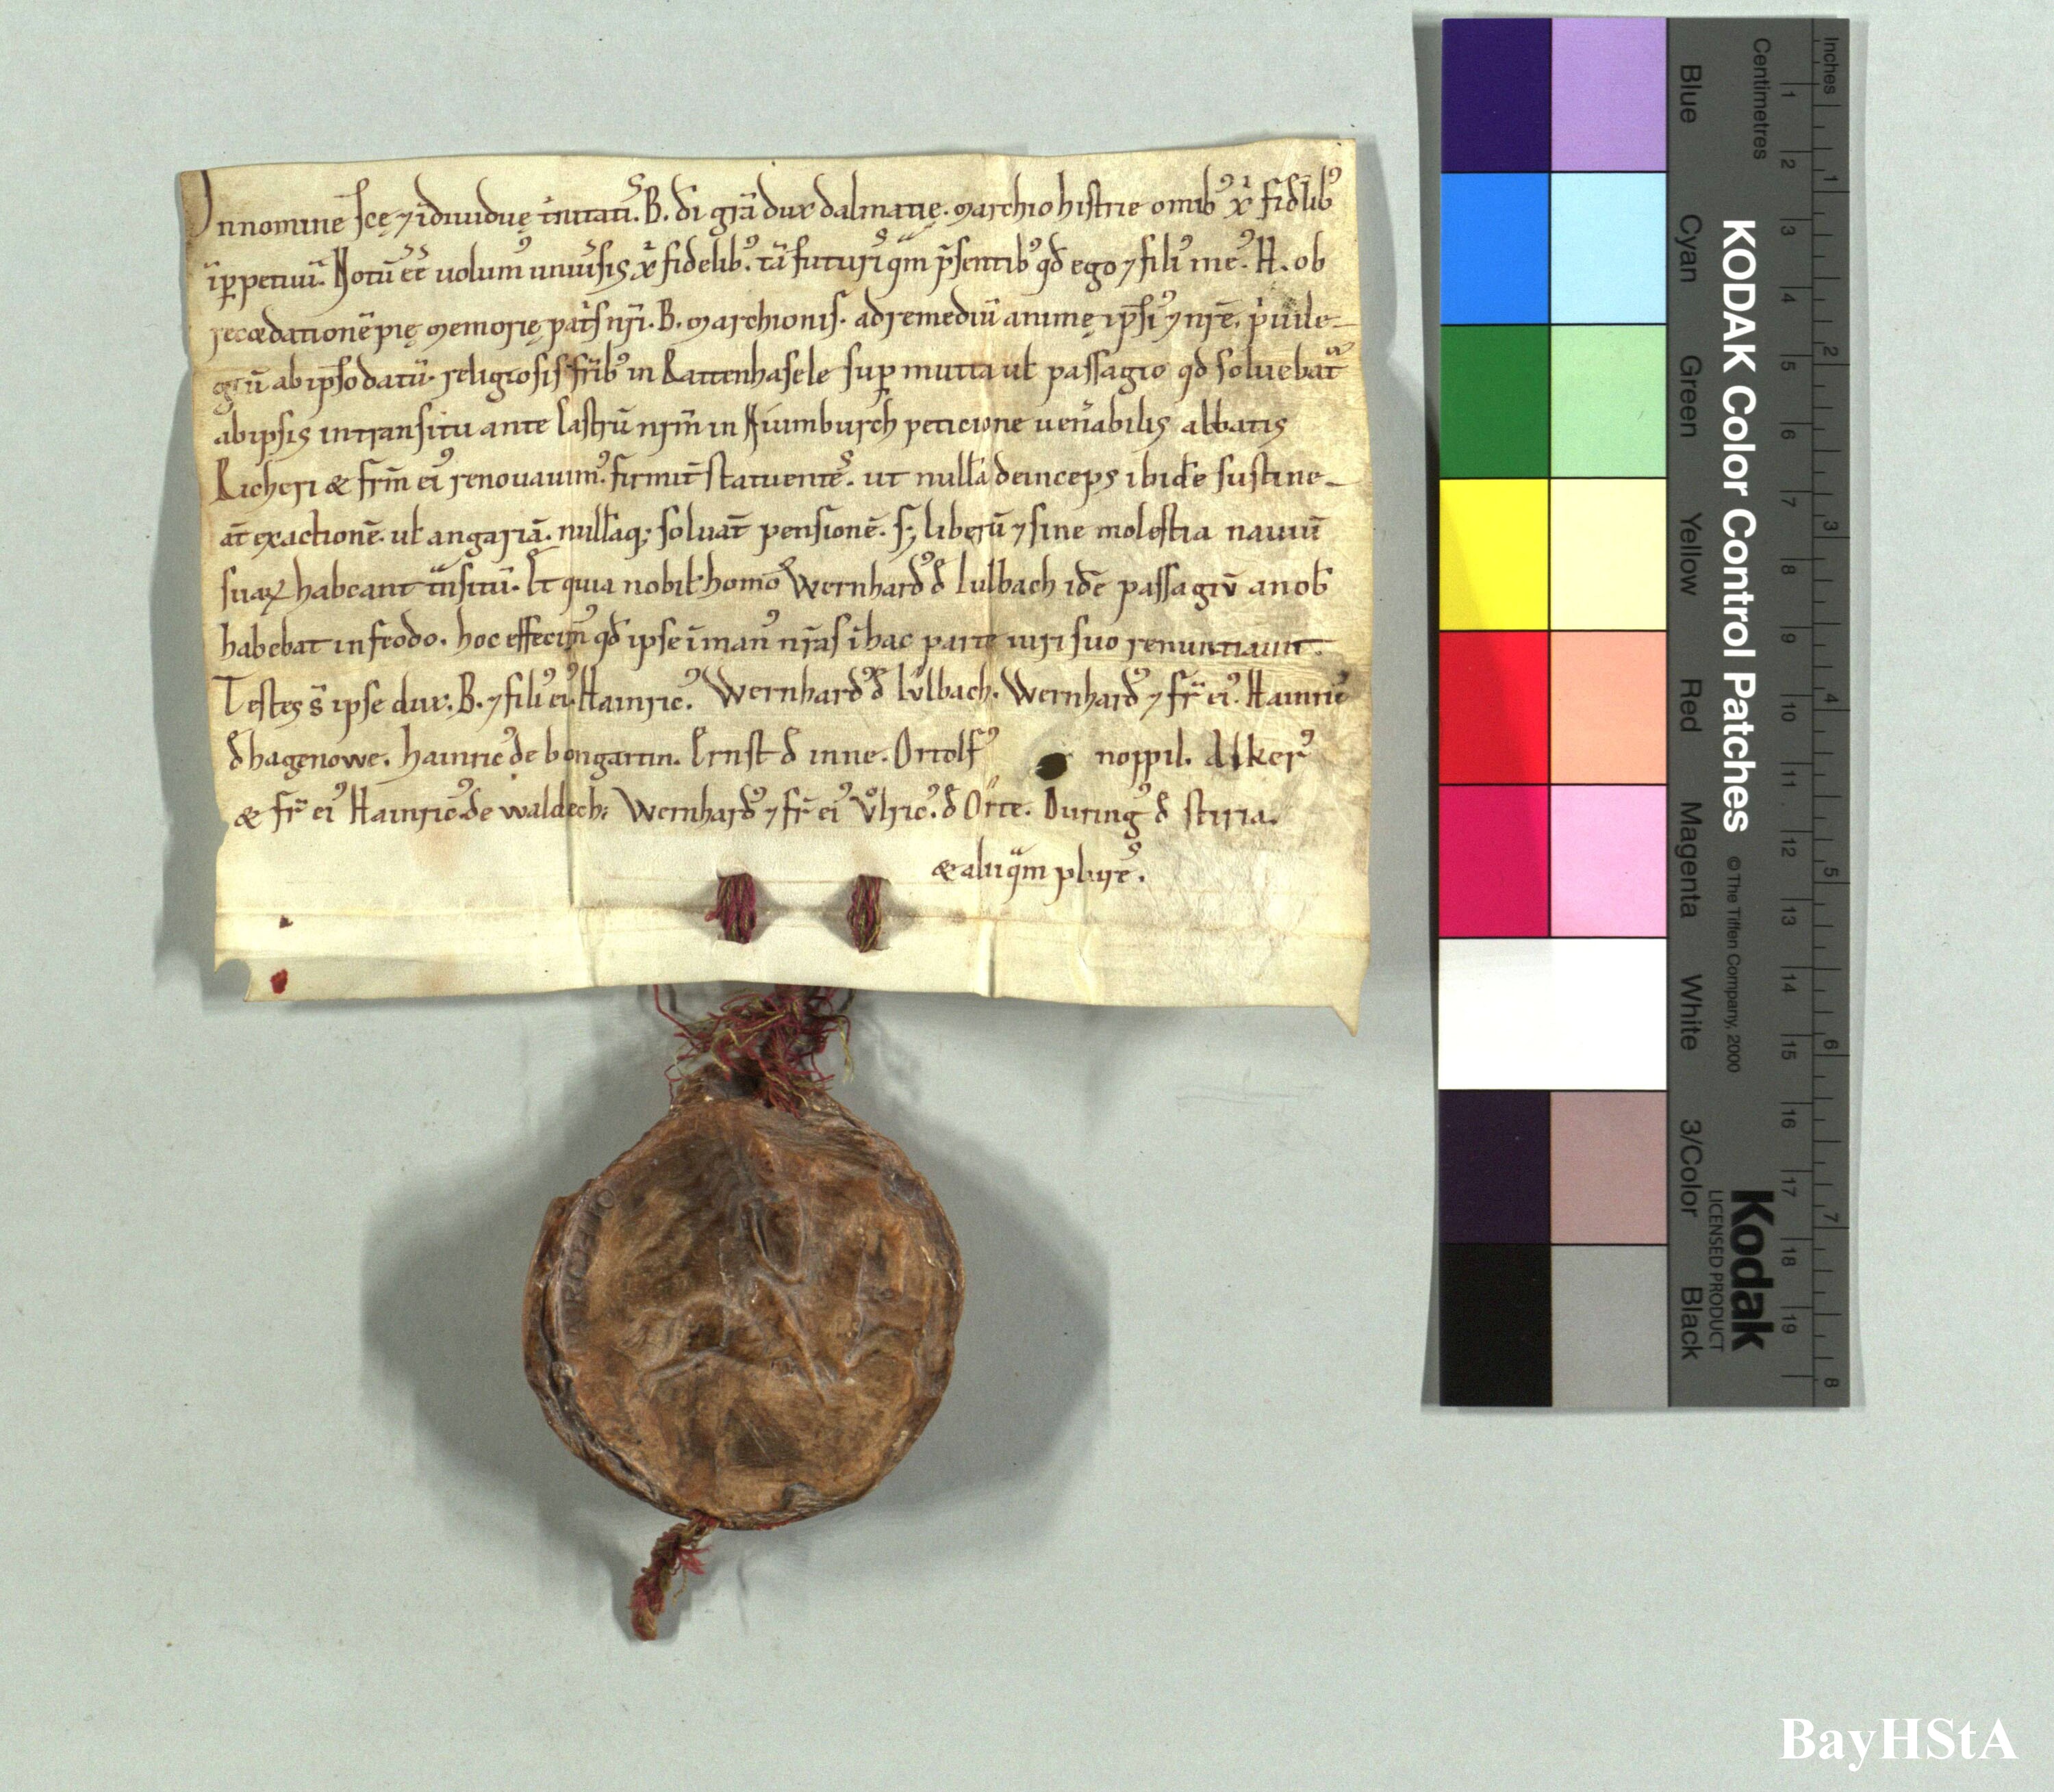 Innomine s̄cę ⁊ īdiuiduę t̄nitati᷒. B. d̄i gr̄a dux dalmatię. marchio histrie omib᷒ xp̄ı fidlib᷒
īp̱petuū. Notū ēē uolum᷒ uniuersis xp̄ı fidelib᷒. tā futuris qͣm p̄sentib᷒ qd̄ ego ⁊ fili᷒ me᷒. H. ob
recordationē pię memorię pat̄s nr̄i. B. marchionis. ad remediū animę ip̄si᷒ ⁊ nr̄ē. p͛uile-
giū ab ip̄so datū. religiosis fr̄ib᷒ in Raittenhasele sup̱ mutta ul̄ passagio qd̄ soluebat͛
ab ipsis in transitu ante castrū nr̄m in Niumburch peticione uen̄abilis abbatis
Richeri & fr̄m ei᷒ renouauim᷒. firmit̄ statuentes. ut nullā deinceps ibidē sustine-
āt exactionē. ul̄ angariā. nullāq; soluāt pensionē. s; liberū ⁊ sine molestia nauiū
suaꝝ habeant tͣnsitū. Et quia nobil̄ homo Wernhard᷒ d̄ Iulbach idē passagiū a nob̄
habebat in feodo. hoc effecim᷒ qd̄ ipse ī man᷒ nr̄as ī hac parte iuri suo renuntiauit.
Testes s̄ ipse dux. B. ⁊ fili᷒ ei᷒ Hainric᷒. Wernhard᷒ d̄ Iulbach. Wernhard᷒ ⁊ fr̄ ei᷒. Hainric᷒
d̄ hagenowe. hainric᷒ de bongartin. Ernst d̄ inne. Ortolf᷒ noppil. Alker᷒
& fr̄ ei᷒ Hainric᷒ de waldech. Wernhard᷒ ⁊ fr̄ ei᷒ Vͦlric᷒. d̄ Orte. During᷒ d̄ stiria.
& aliiqͣm plures.
KODAK Color Control Patches © The Tiffen Company, 2000
Kodak
LICENSED PRODUCT
Blue Cyan Green Yellow Red Magenta White 3/Color Black
Centimetres 1 2 3 4 5 6 7 8 9 10 11 12 13 14 15 16 17 18 19
Inches 1 2 3 4 5 6 7 8
BayHStA